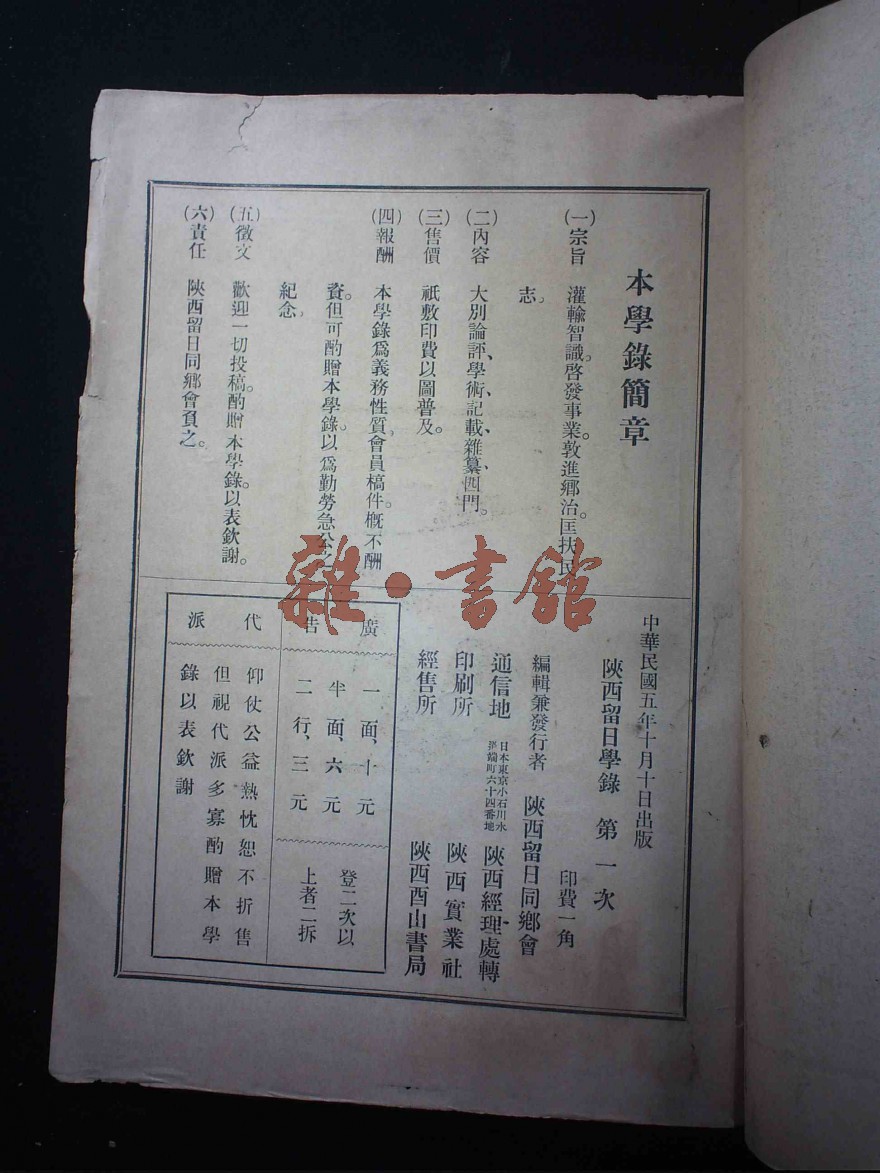 本學錄簡章
(一)宗旨 灌輸智識。啓發事業。敦進鄉治。匡扶民
志。
(二)內容 大別論評、學術、記載、雜纂、四門。
(三)售價 祇敷印費以圖普及。
(四)報酬 本學錄爲義務性質。會員槁件。槪不酬
資。但可酌贈本學錄。以爲勤勞急公之
紀念。
(五)徵文 歡迎一切投稿。酌贈本學錄。以表欽謝。
(六)責任 陝西留日同鄉會負之。
中華民國五年十月十日出版
陝西留日學錄 第一次
印費一角
編輯兼發行者 陝西留日同鄉會
通信地 日本東京小石川水
道端町六十四番地 陝西經理處轉
印刷所 陝西實業社
經售所 陝西酉山書局
廣告
一面、十元
半面、六元
二行、三元
登二次以
上者二折
代派
仰仗公益熱忱恕不折售
但視代派多寡酌贈本學
錄以表欽謝
雜·書館